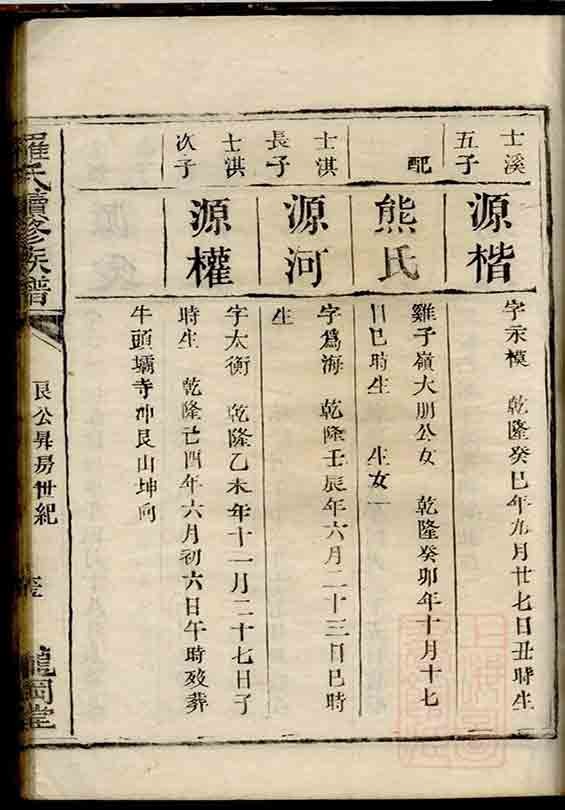 士溪
五子
源楷
字示模　乾隆癸巳年九月廿七日丑時生
配
熊氏
雞子嶺大朋公女　乾隆癸卯年十月十七
日巳時生　生女一
士淇
長子
源河
字爲海　乾隆壬辰年六月二十三日巳時
生
士淇
次子
源權
字太衡　乾隆乙未年十二月二十七日子
時生　乾隆己酉年六月初六日午時歿葬
牛頭壩寺冲艮山坤向
羅氏續修族譜
艮公昇房世紀
龍岡堂